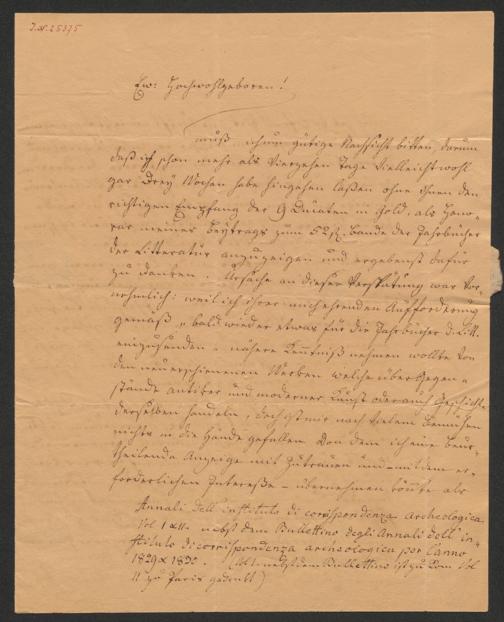 I.N. 25375
Ew: Hochwohlgeboren!
muß ich um gütige Nachsicht bitten, darum
daß ich schon mehr als Vierzehen Tage Vielleicht wohl
gar Drey Wochen habe hingehen laßen ohne Ihnen den
richtigen Empfang der 9 Ducaten in Gold, als Hono-
rar meines Beytrags zum 52sten Bande der Jahrbücher
der Litteratur anzuzeigen und ergebenst dafür
zu danken. Ursache an dieser Verspätung war vor-
nehmlich: weil ich ihrer mich ehrenden Aufforderung
gemäß „bald wieder etwas für die Jahrbücher d. Litt.
einzusenden" nähere Kentniß nehmen wollte von
den neuerschienenen Werken welche über Gegen-
stände antiker und moderner Kunst oder auch Geschichte
derselben handeln, doch ist mir nach vielem Bemühen
nichts in die Hände gefallen von dem ich eine beur-
theilende Anzeige mit Zutrauen und mit dem er-
forderlichen Interesse übernehmen könte als
Annali dell' instituto di corrispondenza archeologica
Vol I & II nebst dem Bullettino degli Annali dell' in-
stituto di corrispondenza archeologica per l'anno
1829 & 1830. (Vol I nebst dem Bullettino ist zu Rom Vol
II zu Paris gedruckt)